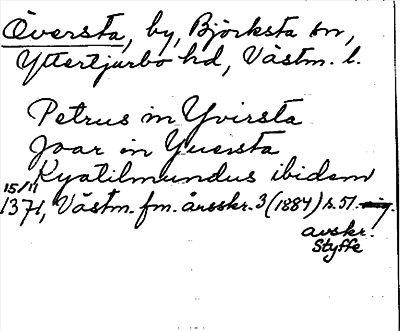 Översta, by, Björksta sn,
Yttertjurbo hd, Västm. l.
Petrus in Yvirsta
Joar in Yuersta
Kyatilmundus ibidem
15/11
1371, Västm. fm. årsskr. 3 (1884) s. 51.
avskr.
Styffe